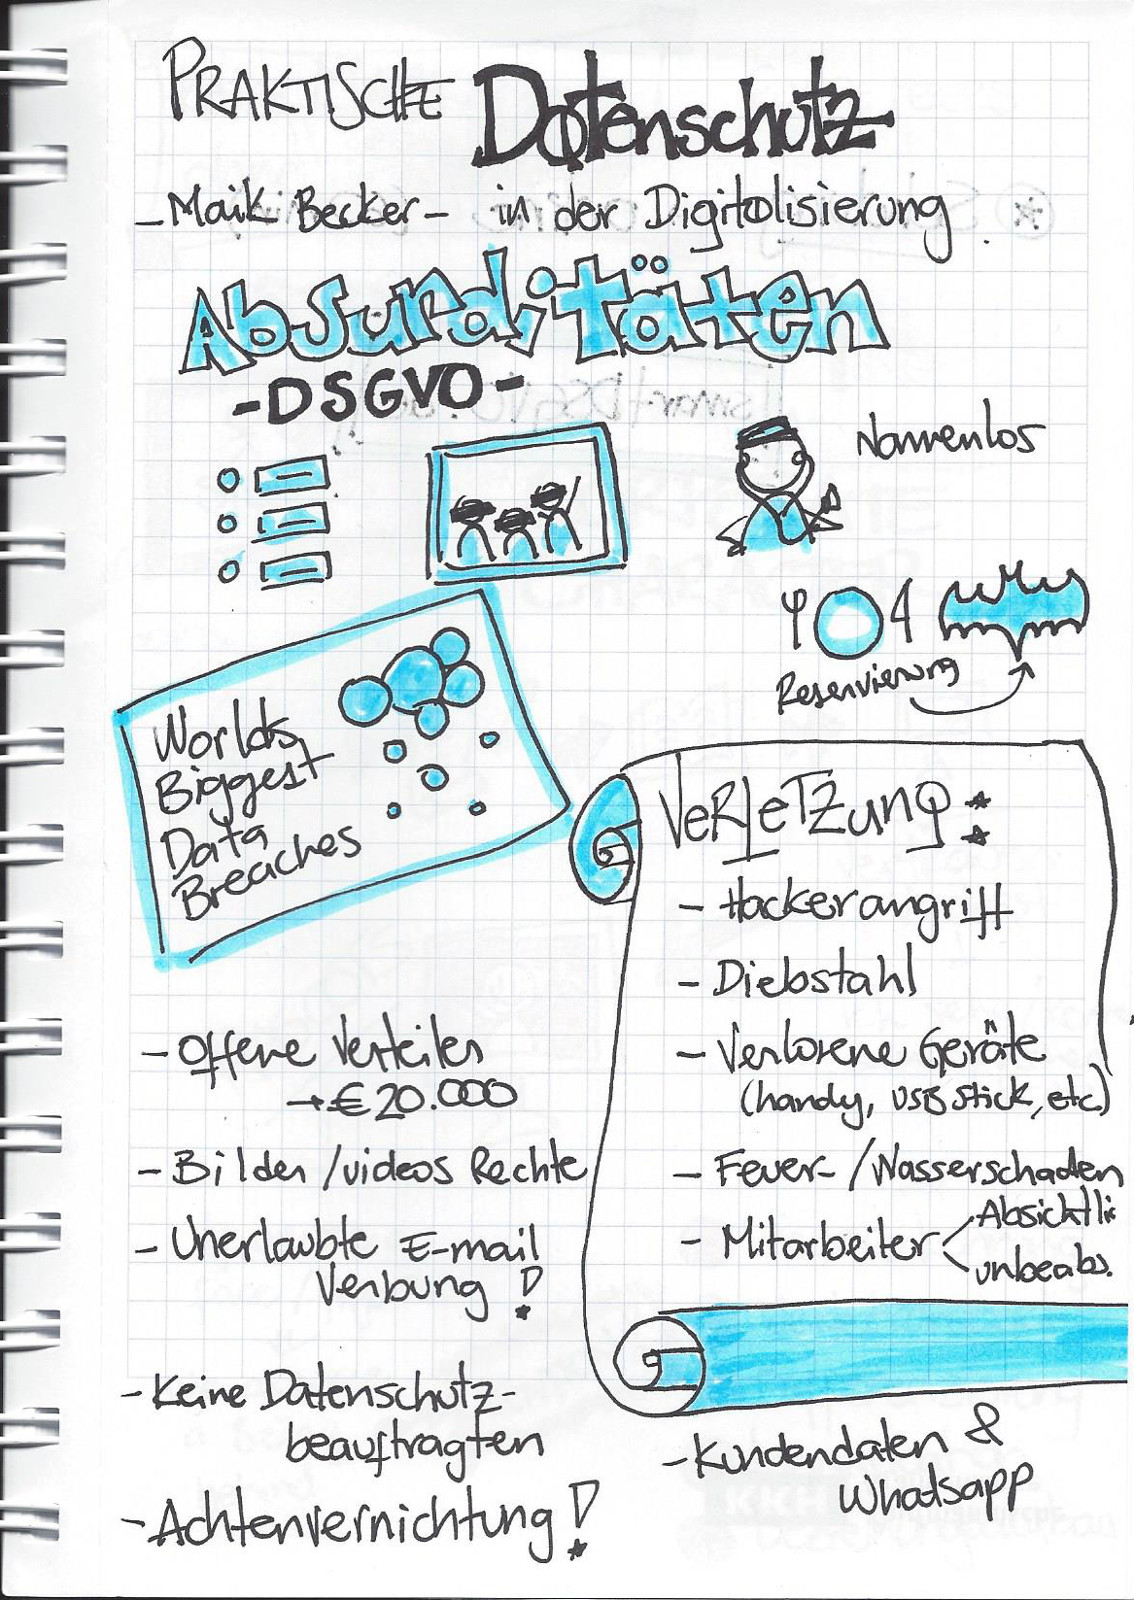 PRAKTISCHE Datenschutz
- Maik Becker - in der Digitalisierung
Absurditäten
- DSGVO -
Namenlos
Reservierung
Worlds
Biggest
Data
Breaches
VERLETZUNG:
- Hackerangriff
- Diebstahl
- Verlorene Geräte
(handy, USB Stick, etc.)
- Feuer- / Wasserschaden
- Mitarbeiter < Absichtli
unbeabs.
- Offene Verteiler
→ € 20.000
- Bilder / videos Rechte
- Unerlaubte E-mail
Verbung !
- Keine Datenschutz-
beauftragten
- Achtenvernichtung !
- Kundendaten &
Whatsapp